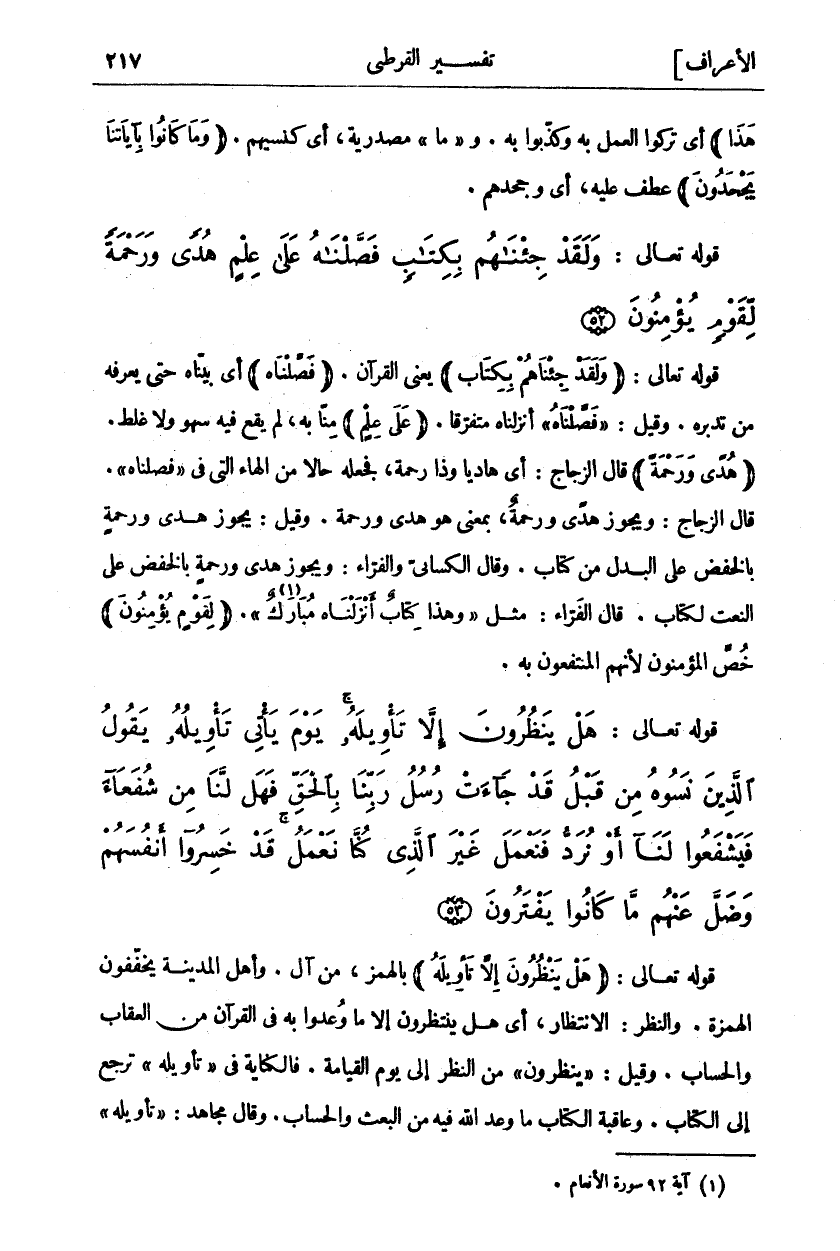 الأعراف] تفسير القرطبى ٢١٧
هَذَا ﴾ أى تركوا العمل به وكذّبوا به . و « ما » مصدرية، أى كنسيهم . ﴿ وَمَا كَانُوا بِآيَاتنَا
يَجْحَدُونَ ﴾ عطف عليه، أى وجحدهم .
قوله تعالى : وَلَقَدْ جِئْنَـٰهُم بِكِتَـٰبٍ فَصَّلْنَـٰهُ عَلَىٰ عِلْمٍ هُدًى وَرَحْمَةً
لِّقَوْمٍ يُؤْمِنُونَ ﴿٥٢﴾
قوله تعالى : ﴿ وَلَقَدْ جِئْنَاهُمْ بِكِتَاب ﴾ يعنى القرآن . ﴿ فَصَّلْنَاه ﴾ أى بيّناه حتى يعرفه
من تدبره . وقيل : «فَصَّلْنَاهُ» أنزلناه متفرّقا . ﴿ عَلَى عِلْمٍ ﴾ مِنّا به، لم يقع فيه سهو ولا غلط.
﴿ هُدًى وَرَحْمَةً ﴾ قال الزجاج : أى هاديا وذا رحمة، فجعله حالا من الهاء التى فى «فصلناه» .
قال الزجاج : ويجوز هدًى ورحمةٌ، بمعنى هو هدى ورحمة . وقيل : يجوز هدى ورحمةٍ
بالخفض على البدل من كتاب . وقال الكسائىّ والفرّاء : ويجوز هدى ورحمةٍ بالخفض على
النعت لكتاب . قال الفَرّاء : مثل « وهذا كِتابٌ أَنْزَلْنَـاه مُبَارَكٌ (١) ». ﴿ لِقَوْمٍ يُؤْمِنُونَ ﴾
خُصّ المؤمنون لأنهم المنتفعون به .
قوله تعالى : هَلْ يَنظُرُونَ إِلَّا تَأْوِيلَهُۥ ۚ يَوْمَ يَأْتِى تَأْوِيلُهُۥ يَقُولُ
ٱلَّذِينَ نَسُوهُ مِن قَبْلُ قَدْ جَآءَتْ رُسُلُ رَبِّنَا بِٱلْحَقِّ فَهَل لَّنَا مِن شُفَعَآءَ
فَيَشْفَعُوا لَنَآ أَوْ نُرَدُّ فَنَعْمَلَ غَيْرَ ٱلَّذِى كُنَّا نَعْمَلُ ۚ قَدْ خَسِرُوٓا أَنفُسَهُمْ
وَضَلَّ عَنْهُم مَّا كَانُوا يَفْتَرُونَ ﴿٥٣﴾
قوله تعـالى : ﴿ هَلْ يَنْظُرُونَ إِلَّا تَأوِيلَهُ ﴾ بالهمز ، من آل . وأهل المدينـة يخفّفون
الهمزة . والنظر : الانتظار، أى هـل ينتظرون إلا ما وُعدوا به فى القرآن من العقاب
والحساب . وقيل : «ينظرون» من النظر إلى يوم القيامة . فالكناية فى « تأويله » ترجع
إلى الكتاب . وعاقبة الكتاب ما وعد الله فيه من البعث والحساب. وقال مجاهد : «تأويله»
(١) آية ٩٢ سورة الأنعام .